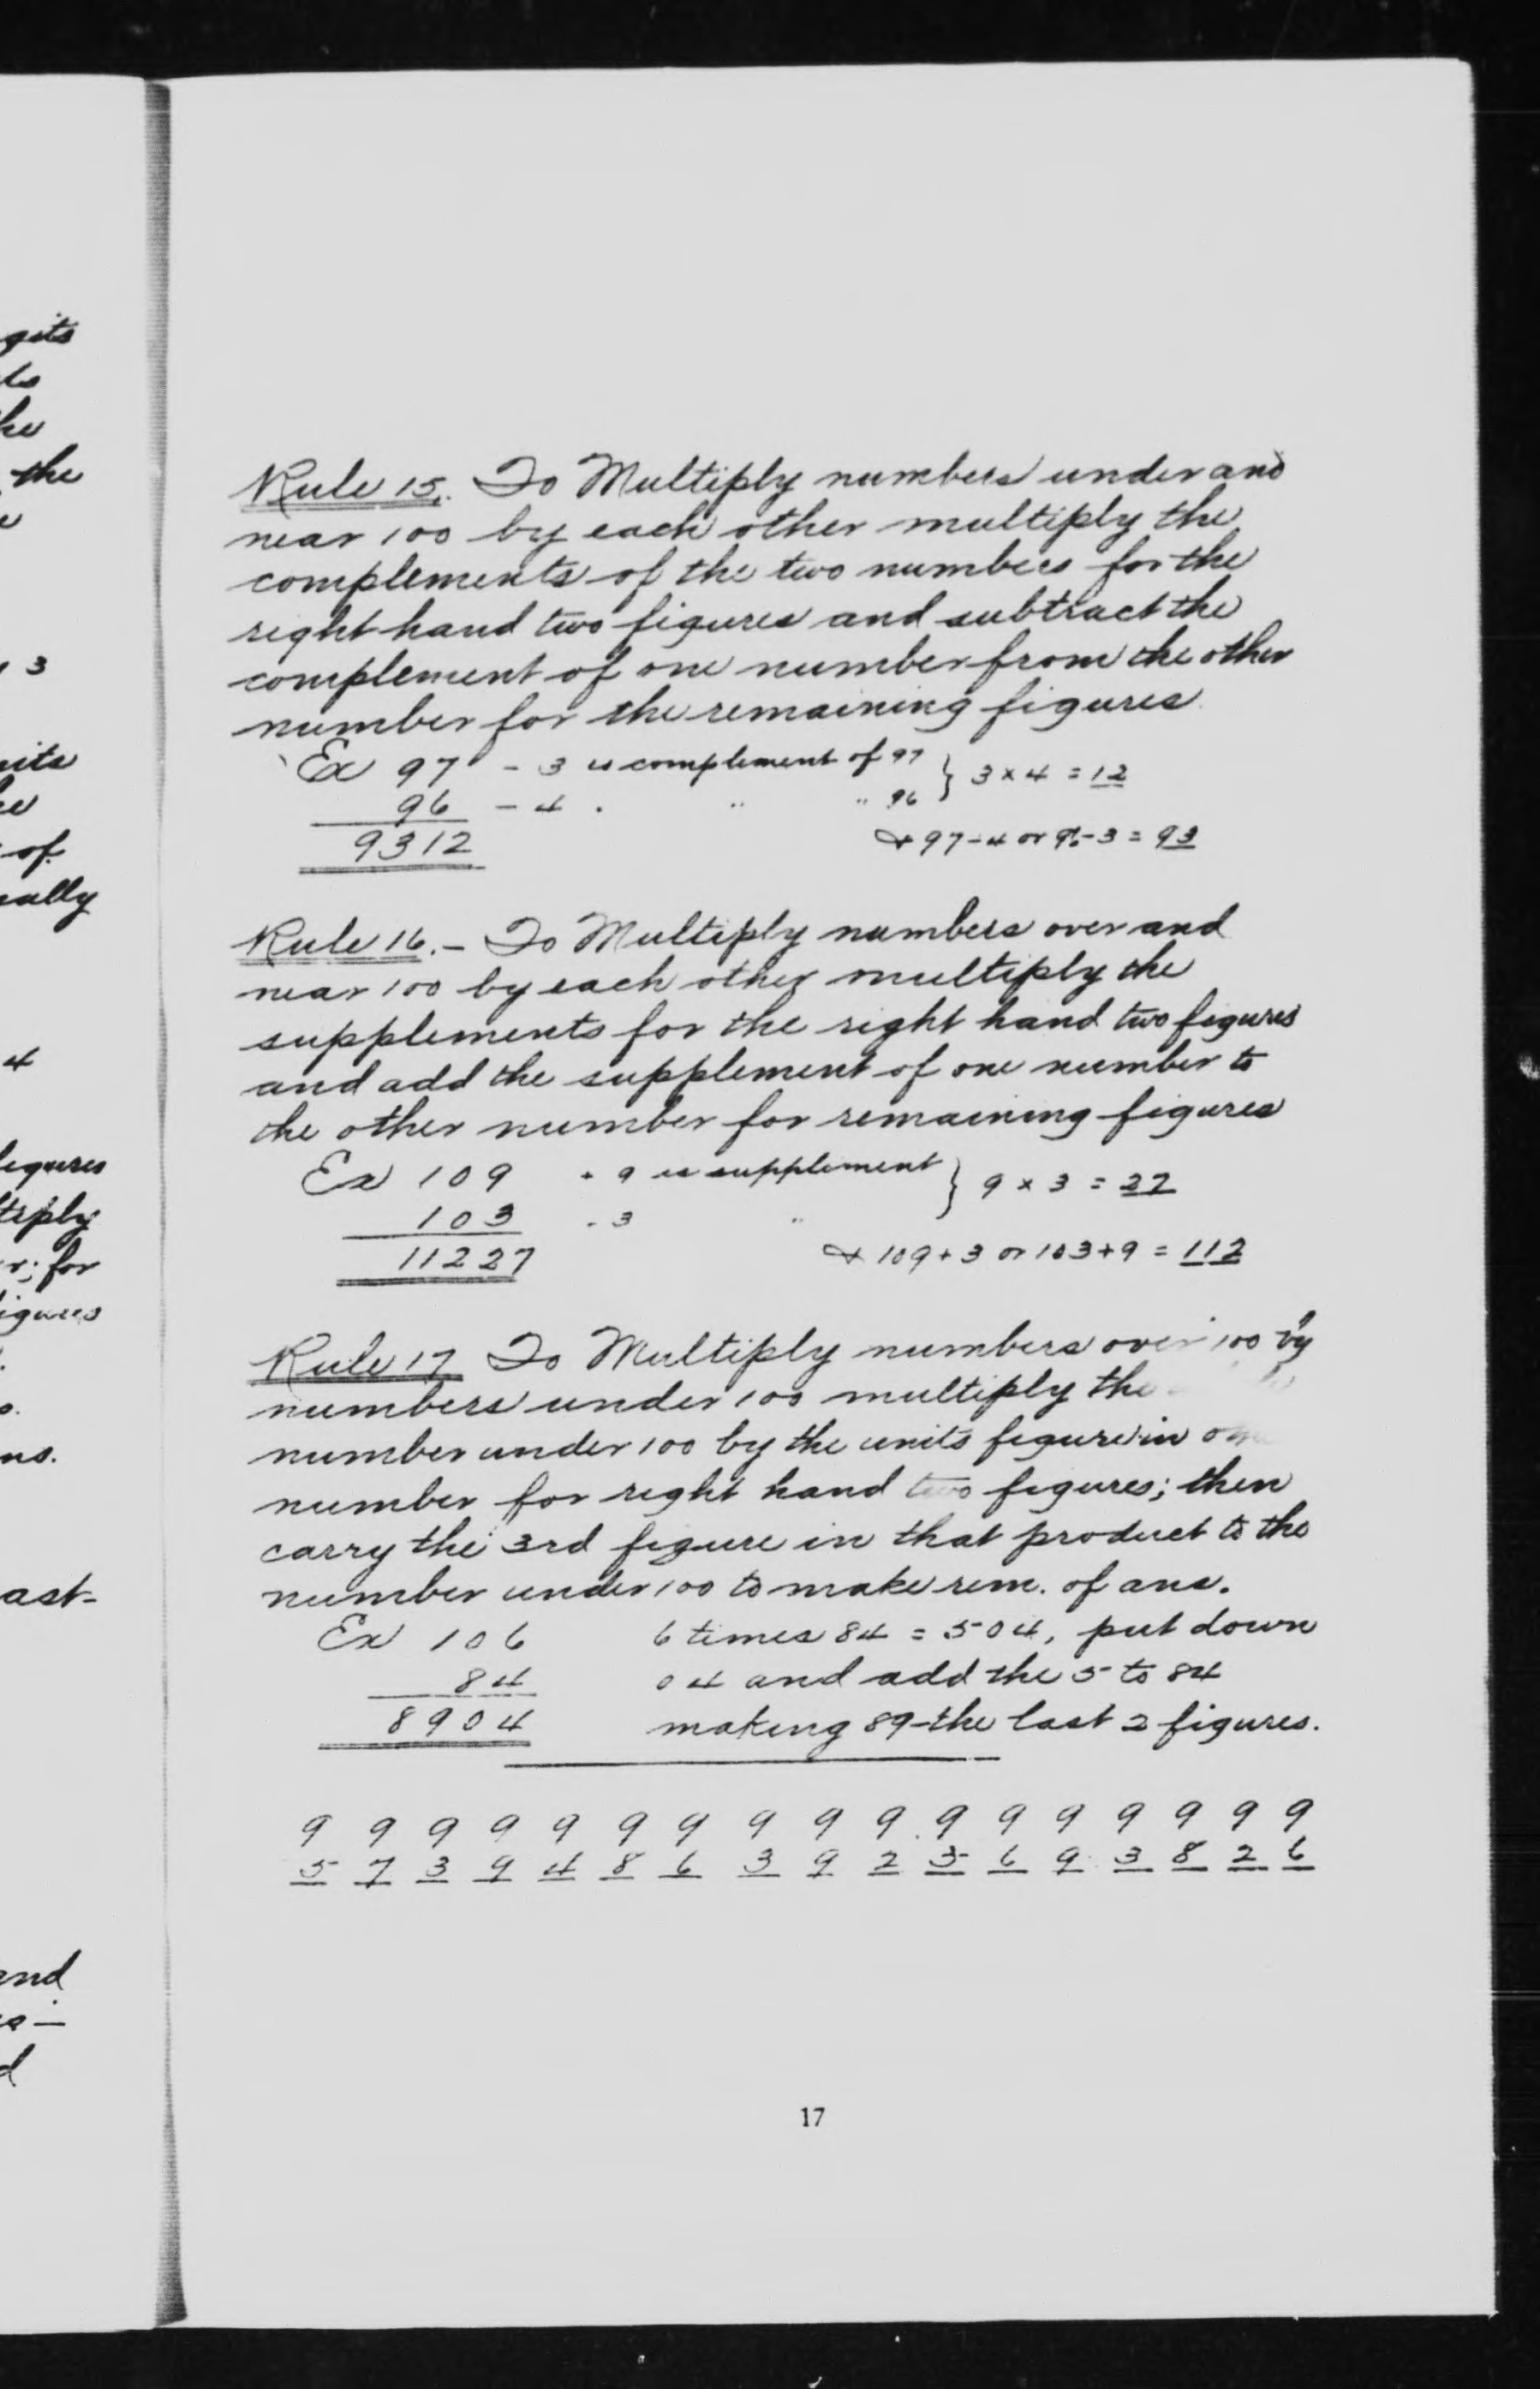 gits
the
3
of
ally
4
figures
tiply
r; for
igures
ns.
ast-
and
Rule 15. To Multiply numbers under and
near 100 by each other multiply the
complements of the two numbers for the
right hand two figures and subtract the
complement of one number from the other
number for the remaining figures.
Ex 97 - 3 is complement of 97 } 3 x 4 = 12
96 - 4 . " " 96
9312 & 97-4 or 96-3 = 93
Rule 16. - To Multiply numbers over and
near 100 by each other multiply the
supplements for the right hand two figures
and add the supplement of one number to
the other number for remaining figures
Ex 109 - 9 is supplement } 9 x 3 = 27
103 - 3 "
11227 & 109+3 or 103+9 = 112
Rule 17 To Multiply numbers over 100 by
numbers under 100 multiply the
number under 100 by the units figure in
number for right hand two figures; then
carry the 3rd figure in that product to the
number under 100 to make rem. of ans.
Ex 106 6 times 84 = 504, put down
84 04 and add the 5 to 84
8904 making 89-the last 2 figures.
9 9 9 9 9 9 9 9 9 9 9 9 9 9 9 9 9
5 7 3 9 4 8 6 3 9 2 5 6 9 3 8 2 6
17